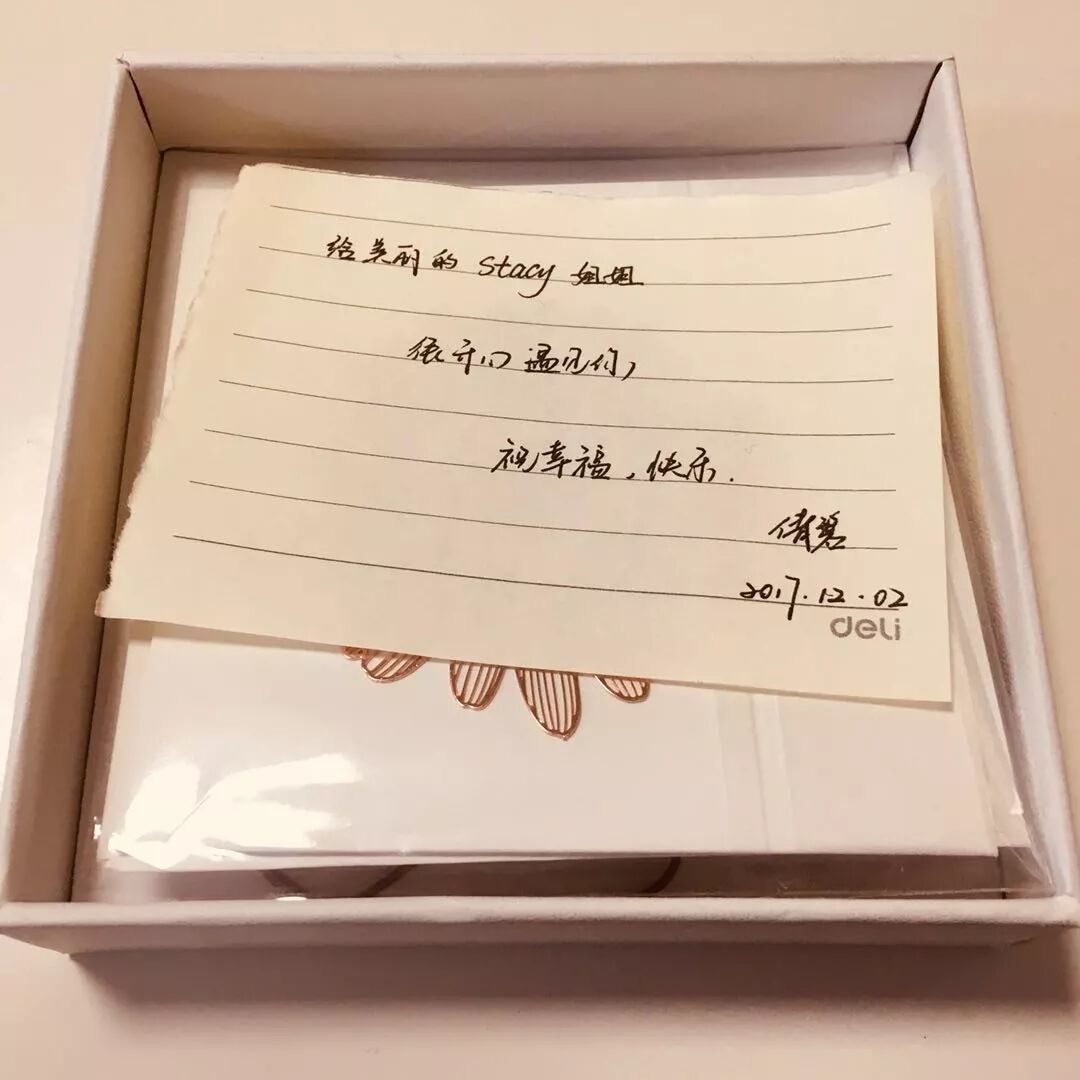 给美丽的 Stacy 姐姐
很开心遇见你,
祝幸福、快乐.
倩碧
2017.12.02
deli